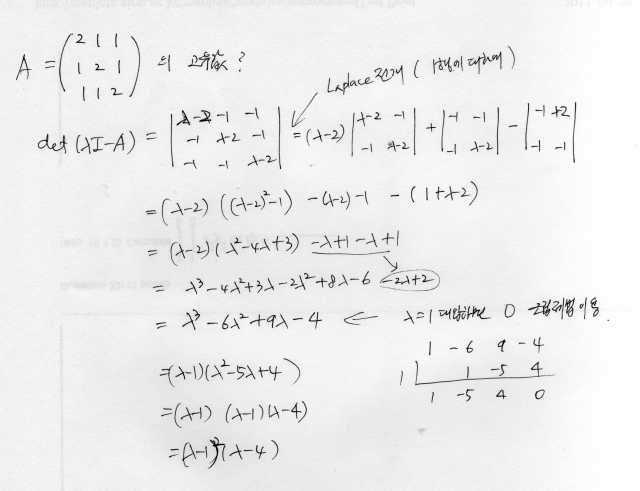 A = (2 1 1 / 1 2 1 / 1 1 2) 의 고유값?
Laplace 전개 (1행에 대하여)
det (λI-A) = |λ-2 -1 -1 / -1 λ-2 -1 / -1 -1 λ-2| = (λ-2) |λ-2 -1 / -1 λ-2| + |-1 -1 / -1 λ-2| - |-1 λ-2 / -1 -1|
= (λ-2) ((λ-2)²-1) -(λ-2)-1 - (1+λ-2)
= (λ-2) (λ²-4λ+3) -λ+1-λ+1
= λ³-4λ²+3λ-2λ²+8λ-6 -2λ+2
= λ³-6λ²+9λ-4 ← λ=1 대입하면 0 조립제법 이용.
1 -6 9 -4
1 1 -5 4
1 -5 4 0
=(λ-1)(λ²-5λ+4)
=(λ-1) (λ-1)(λ-4)
=(λ-1)²(λ-4)